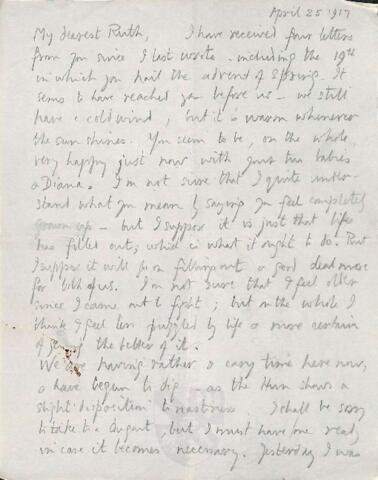 April 25 1917
My dearest Ruth, I have received four letters
from you since I last wrote - including the 19th
in which you hail the advent of Spring. It
seems to have reached you before us - we still
have a cold wind; but it is warm whenever
the sun shines. You seem to be, on the whole,
very happy just now with your two babies
& Diana. I'm not sure that I quite under-
stand what you mean by saying you feel completely
grown up - but I suppose it is just that life
has filled out, which is what it ought to do. But
I suppose it will go on filling out a good deal more
for both of us. I'm not sure that I feel older
since I came out to fight; but on the whole I
think I feel less puzzled by life & more certain
of the better of it.
We are having rather a easy time here now,
& have begun to dig - as the Hun shows a
slight disposition to nastiness I shall be sorry
to take to a dugout but I must have one ready
in case it becomes necessary. Yesterday I was